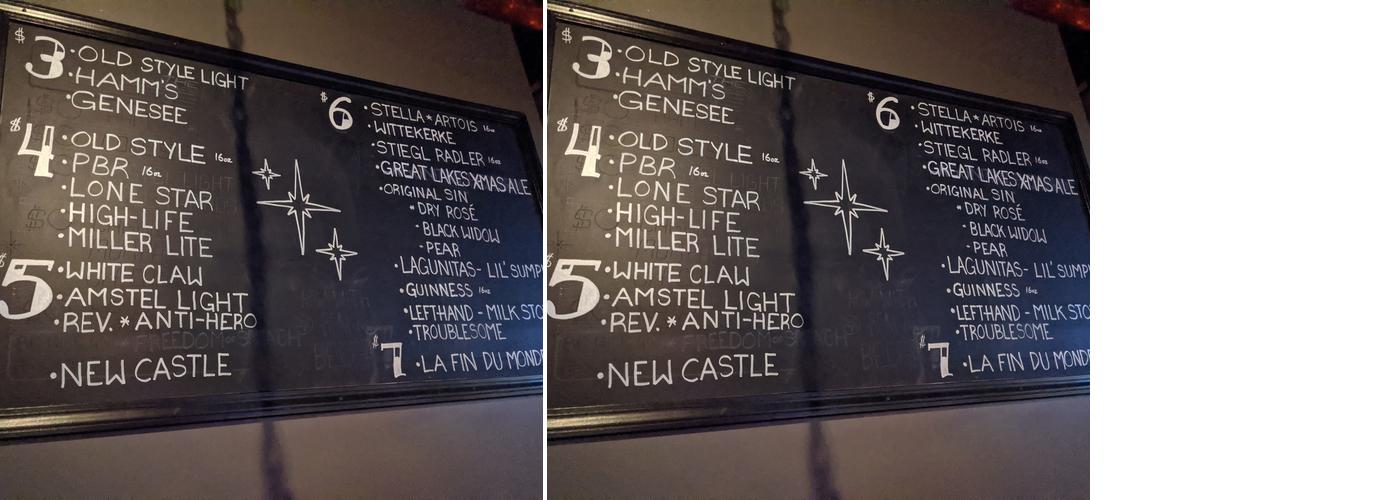 $3 • OLD STYLE LIGHT
• HAMM'S
• GENESEE
$4 • OLD STYLE 16oz
• PBR 16oz
• LONE STAR
• HIGH-LIFE
• MILLER LITE
$5 • WHITE CLAW
• AMSTEL LIGHT
• REV. * ANTI-HERO
• NEW CASTLE
$6 • STELLA * ARTOIS 16oz
• WITTEKERKE
• STIEGL RADLER 16oz
• GREAT LAKES XMAS ALE
• ORIGINAL SIN
* DRY ROSÉ
- BLACK WIDOW
- PEAR
• LAGUNITAS - LIL' SUMP
• GUINNESS 16oz
• LEFTHAND - MILK STO
• TROUBLESOME
$7 • LA FIN DU MONDE
$3 • OLD STYLE LIGHT
• HAMM'S
• GENESEE
$4 • OLD STYLE 16oz
• PBR 16oz
• LONE STAR
• HIGH-LIFE
• MILLER LITE
$5 • WHITE CLAW
• AMSTEL LIGHT
• REV. * ANTI-HERO
• NEW CASTLE
$6 • STELLA * ARTOIS 16oz
• WITTEKERKE
• STIEGL RADLER 16oz
• GREAT LAKES XMAS ALE
• ORIGINAL SIN
* DRY ROSÉ
- BLACK WIDOW
- PEAR
• LAGUNITAS - LIL' SUMP
• GUINNESS 16oz
• LEFTHAND - MILK STO
• TROUBLESOME
$7 • LA FIN DU MONDE